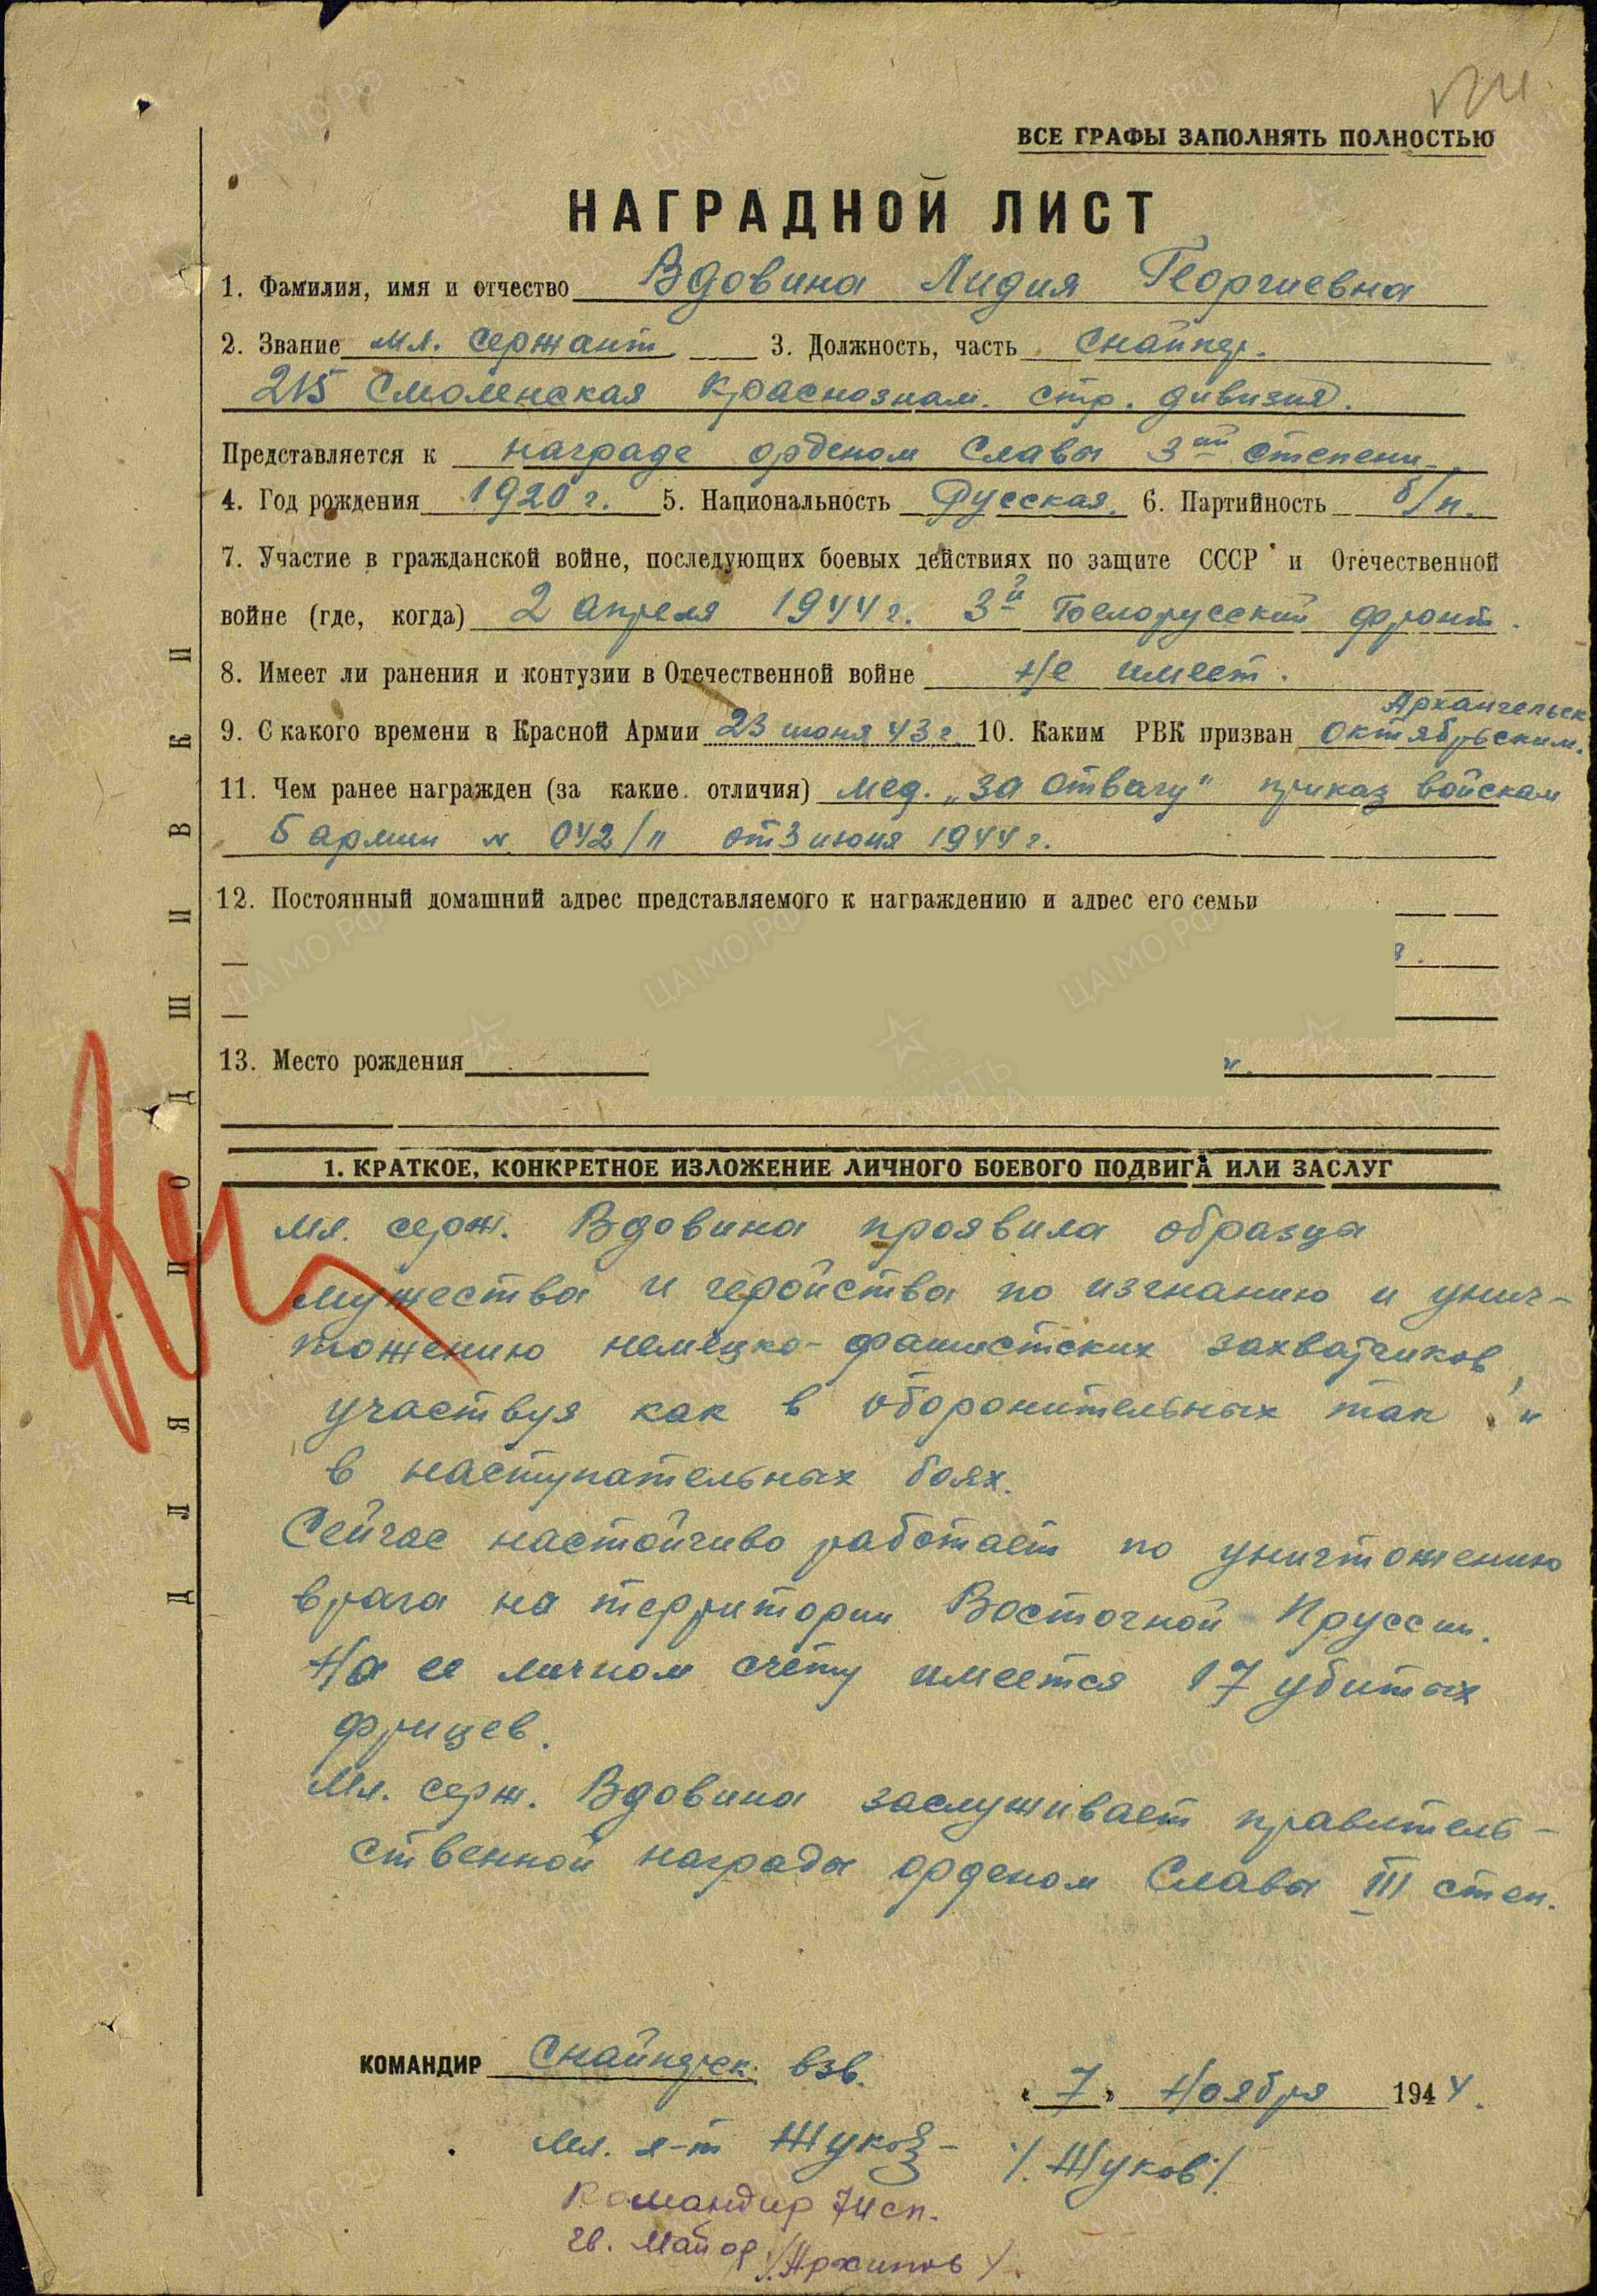 ВСЕ ГРАФЫ ЗАПОЛНЯТЬ ПОЛНОСТЬЮ
НАГРАДНОЙ ЛИСТ
1. Фамилия, имя и отчество Вдовина Лидия Георгиевна
2. Звание мл. сержант 3. Должность, часть снайпер.
215 Смоленская Краснознам. стр. дивизия.
Представляется к награде орденом Славы 3ей степени
4. Год рождения 1920 г. 5. Национальность Русская. 6. Партийность б/п.
7. Участие в гражданской войне, последующих боевых действиях по защите СССР и Отечественной
войне (где, когда) 2 апреля 1944 г. 3й Белорусский фронт.
8. Имеет ли ранения и контузии в Отечественной войне Не имеет.
Архангельск
9. С какого времени в Красной Армии 23 июня 43 г. 10. Каким РВК призван Октябрьским.
11. Чем ранее награжден (за какие отличия) мед. „За отвагу" приказ войскам
5 армии N 042/н от 3 июня 1944 г.
12. Постоянный домашний адрес представляемого к награждению и адрес его семьи
13. Место рождения
1. КРАТКОЕ, КОНКРЕТНОЕ ИЗЛОЖЕНИЕ ЛИЧНОГО БОЕВОГО ПОДВИГА ИЛИ ЗАСЛУГ
Мл. серж. Вдовина проявила образца
мужества и геройства по изгнанию и унич-
тожению немецко-фашистских захватчиков,
участвуя как в оборонительных так и
в наступательных боях.
Сейчас настойчиво работает по уничтожению
врага на территории Восточной Пруссии.
На ее личном счету имеется 17 убитых
фрицев.
Мл. серж. Вдовина заслуживает правитель-
ственной награды орденом Славы III степ.
КОМАНДИР Снайперск. взв.
«7» Ноября 1944.
Мл. л-т Жуков /Жуков/
Командир 711 сп.
гв. Майор /Архипов/.
ДЛЯ ПОДШИВКИ
ЦАМО РФ
ПАМЯТЬ НАРОДА